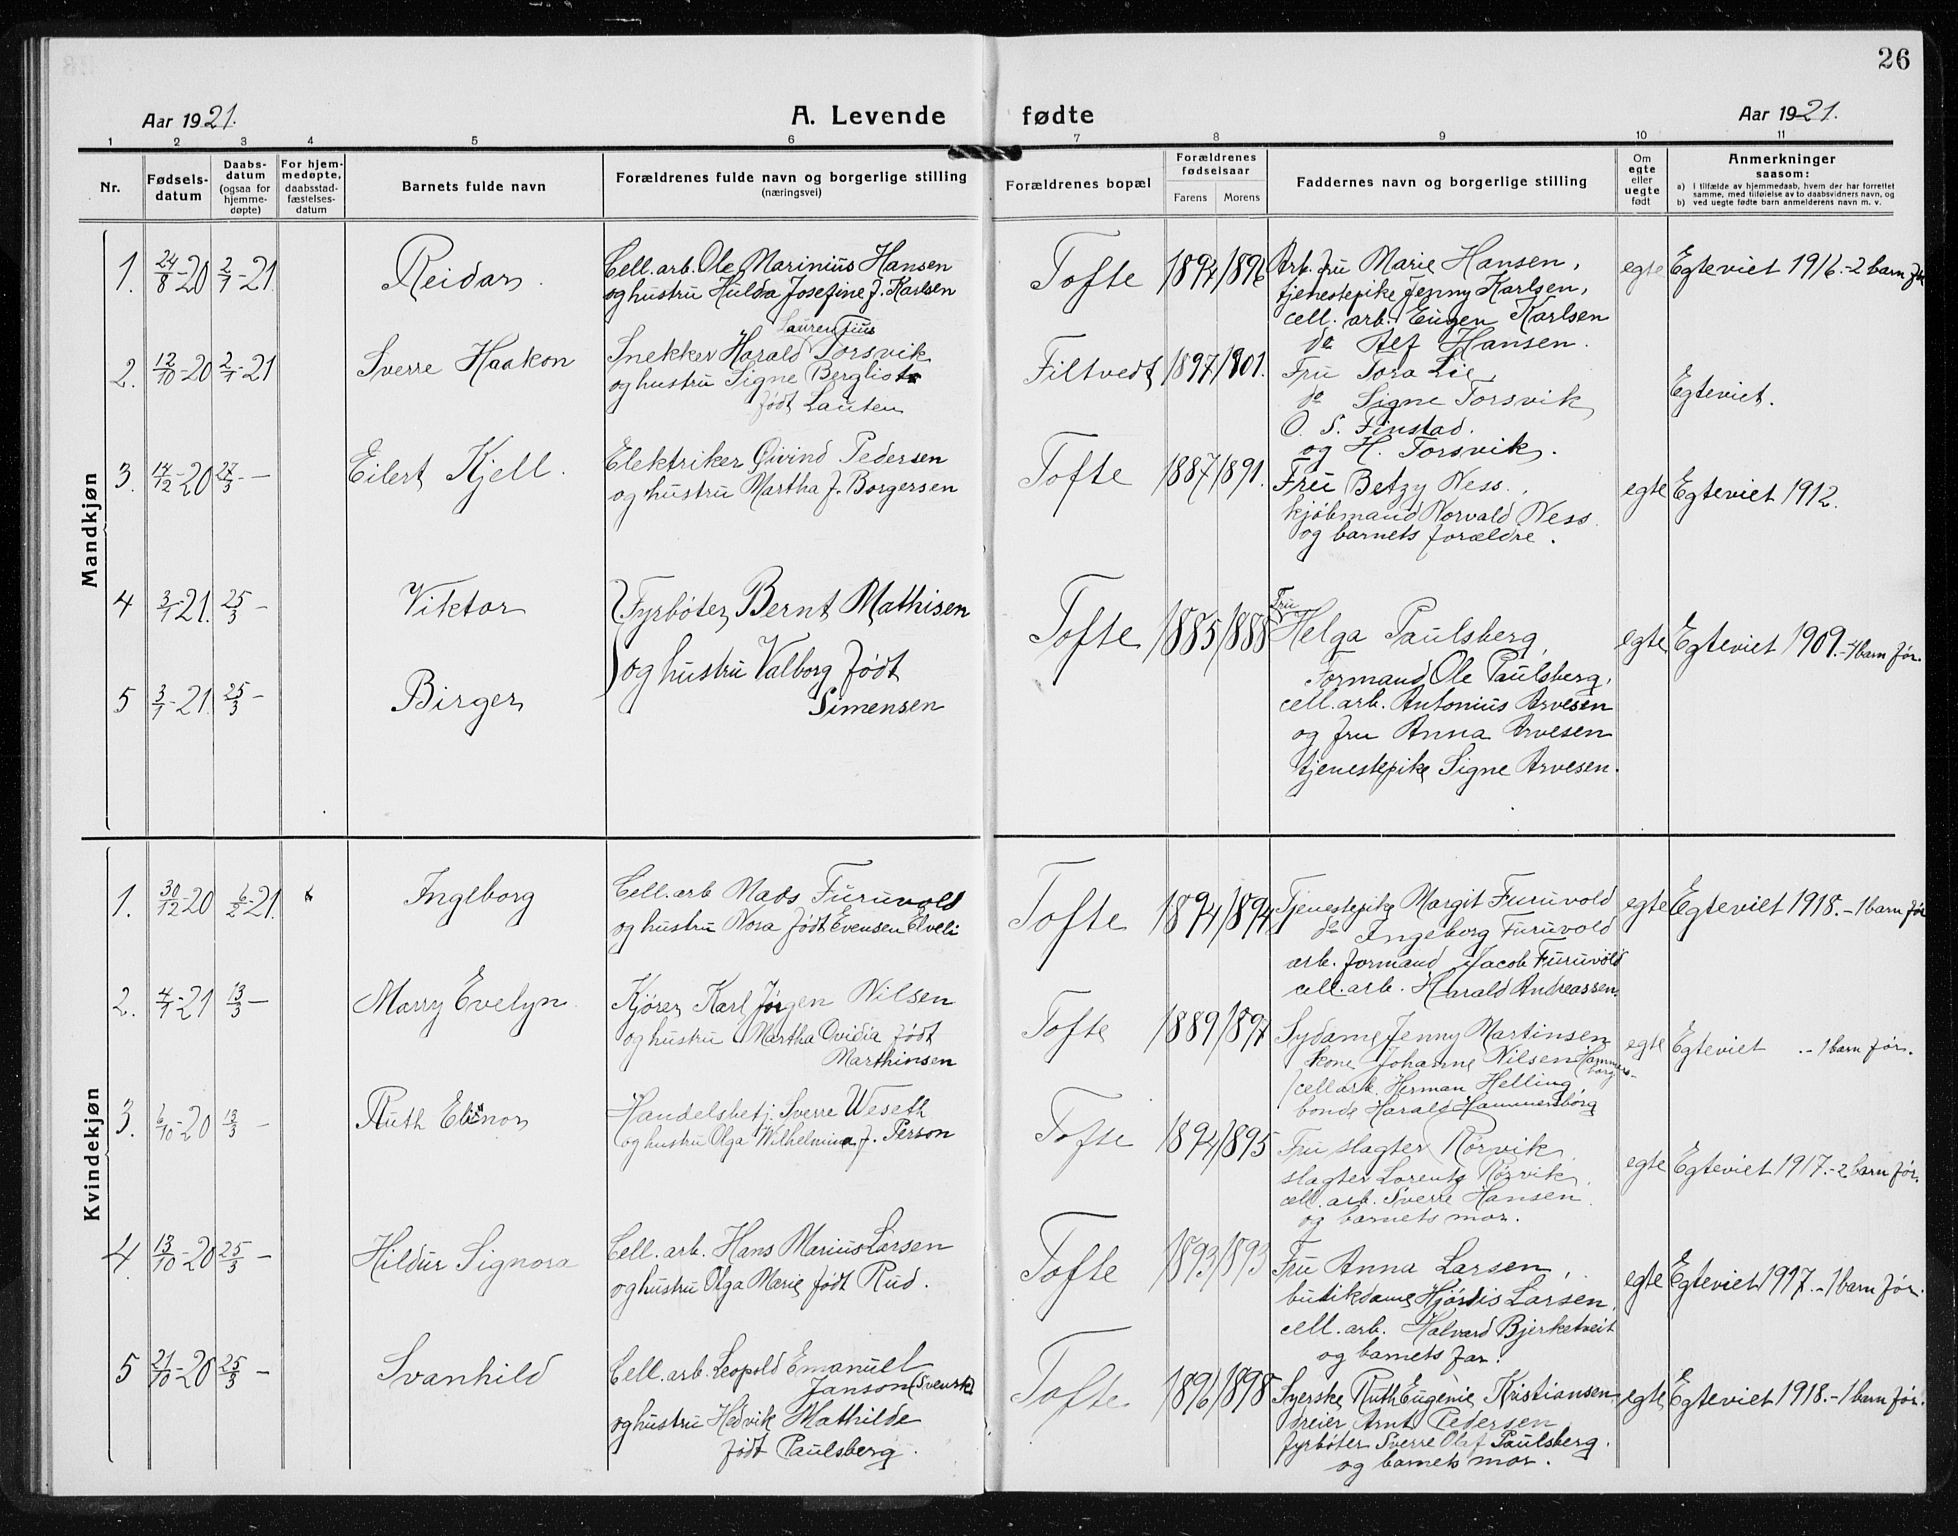 26
Aar 1921.
A. Levende fødte
Aar 1921.
1 2 3 4 5 6 7 8 9 10 11
Nr.
Fødsels-
datum
Daabs-
datum
(ogsaa for
hjemme-
døpte)
For hjem-
medøpte,
daabsstad-
fæstelses-
datum
Barnets fulde navn
Forældrenes fulde navn og borgerlige stilling
(næringsvei)
Forældrenes bopæl
Forældrenes
fødselsaar
Farens Morens
Faddernes navn og borgerlige stilling
Om
egte
eller
uegte
født
Anmerkninger
saasom:
a) I tilfælde av hjemmedaab, hvem der har forrettet
samme, med tilføielse av to daabsvidners navn, og
b) ved uegte fødte barn anmelderens navn m. v.
Mandkjøn
1. 24/8-20 2/1-21 Reidar
Cell. arb. Ole Marinius Hansen
og hustru Hulda Josefine f. Karlsen
Tofte 1894 1896
Arb. fru Marie Hansen,
tjenestepike Jenny Karlsen,
cell. arb. Eugen Karlsen
do Alf Hansen.
egte Egteviet 1916.-2 barn før
2. 12/10-20 2/1-21 Sverre Haakon
Laurentius
Snekker Harald Torsvik
og hustru Signe Bergliot
født Lauten
Filtvedt 1897 1901.
Fru Tora Lie,
do Signe Torsvik,
O. S. Finstad.
og H. Torsvik.
Egteviet.
3. 14/12-20 27/3- — Eilert Kjell.
Elektriker Øivind Pedersen
og hustru Martha f. Borgersen
Tofte 1887 1891.
Fru Betzy Ness,
kjøbmand Norvald Ness.
og barnets forældre.
egte Egteviet 1912.
4 3/1-21. 25/3 — Viktor
Fyrbøter Bernt Mathisen
og hustru Valborg født
Simensen
Tofte 1885 1888
Fru
Helga Paulsberg,
Formand Ole Paulsberg,
cell. arb. Antonius Arvesen
og fru Anna Arvesen
tjenestepike Signe Arvesen.
egte Egteviet 1909.-1 barn før.
5 3/1-21. 25/3 — Birger
Kvindekjøn
1. 30/12-20 6/2-21. Ingeborg
Cell. arb Mads Furuvold
og hustru Nora født Evensen Elveli
Tofte 1894 1894
Tjenestepike Margit Furuvold
do Ingeborg Furuvold
arb. formand Jacob Furuvold
cell. arb. Harald Andreassen.
egte Egteviet 1918.-1 barn før
2. 4/1-21 13/3 — Marry Evelyn.
Kjører Karl Jørgen Nilsen
og hustru Martha Ovidia født
Marthinsen
Tofte 1889 1897
Sydame Jenny Martinsen
kone Johanne Nilsen Hammers-
borg
cell arb. Herman Helling,
bonde Harald Hammersborg
egte Egteviet .-1 barn før.
3. 6/10-20 13/3 — Ruth Elinor
Handelsbetj. Sverre Weseth
og hustru Olga Wilhelmina f. Person
Tofte 1894 1895
Fru slagter Rørvik,
slagter Lorentz Rørvik,
cell. arb. Sverre Hansen
og barnets mor.
egte Egteviet 1917.-2 barn før.
4. 13/10-20 25/3 — Hildur Signora
Cell. arb. Hans Marius Larsen
og hustru Olga Marie født Rud.
Tofte 1893 1893
Fru Anna Larsen,
butikdame Hjørdis Larsen,
cell. arb. Halvard Bjerketveit
og barnets far.
egte Egteviet 1917.-1 barn før.
5 21/10-20 25/3 — Svanhild
Cell. arb. Leopold Emanuel
Janson (Svensk)
og hustru Hedvik Mathilde
født Paulsberg.
Tofte 1896 1898
Syerske Ruth Eugenie Kristiansen
dreier Arnt Pedersen,
fyrbøter Sverre Olaf Paulsberg.
og barnets mor.
egte Egteviet 1918.-1 barn før.